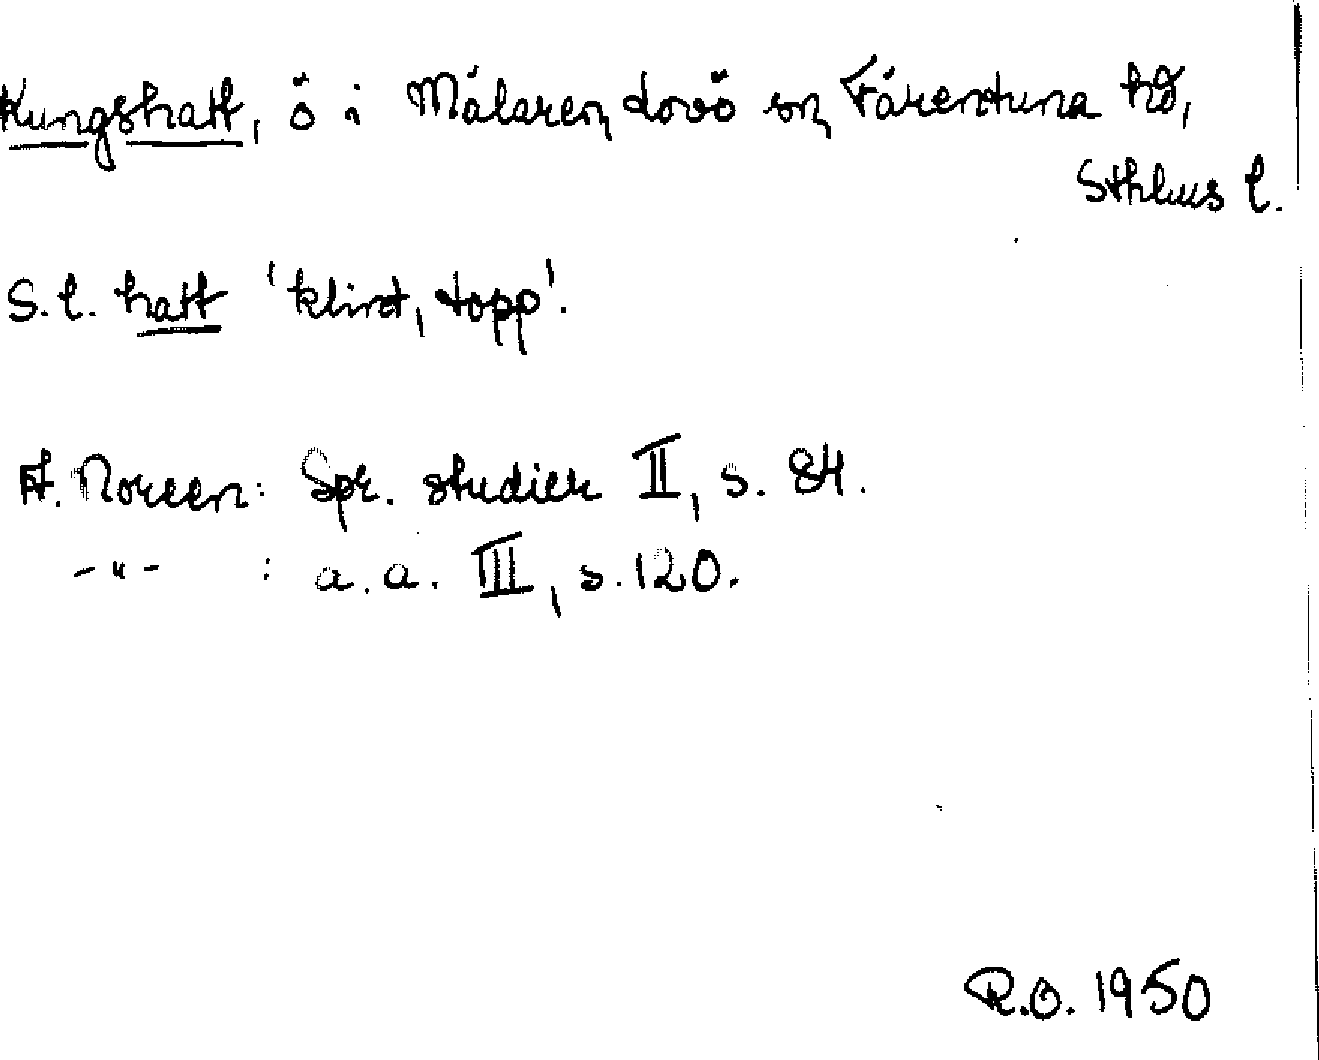 Kungshatt, ö i Mälaren, Lovö sn, Färentuna hd,
Sthlms l.
S.l. hatt 'klint, topp'.
A. Noreen: Spr. studier II, s. 84.
-"- : a.a. III, s. 120.
R.O. 1950